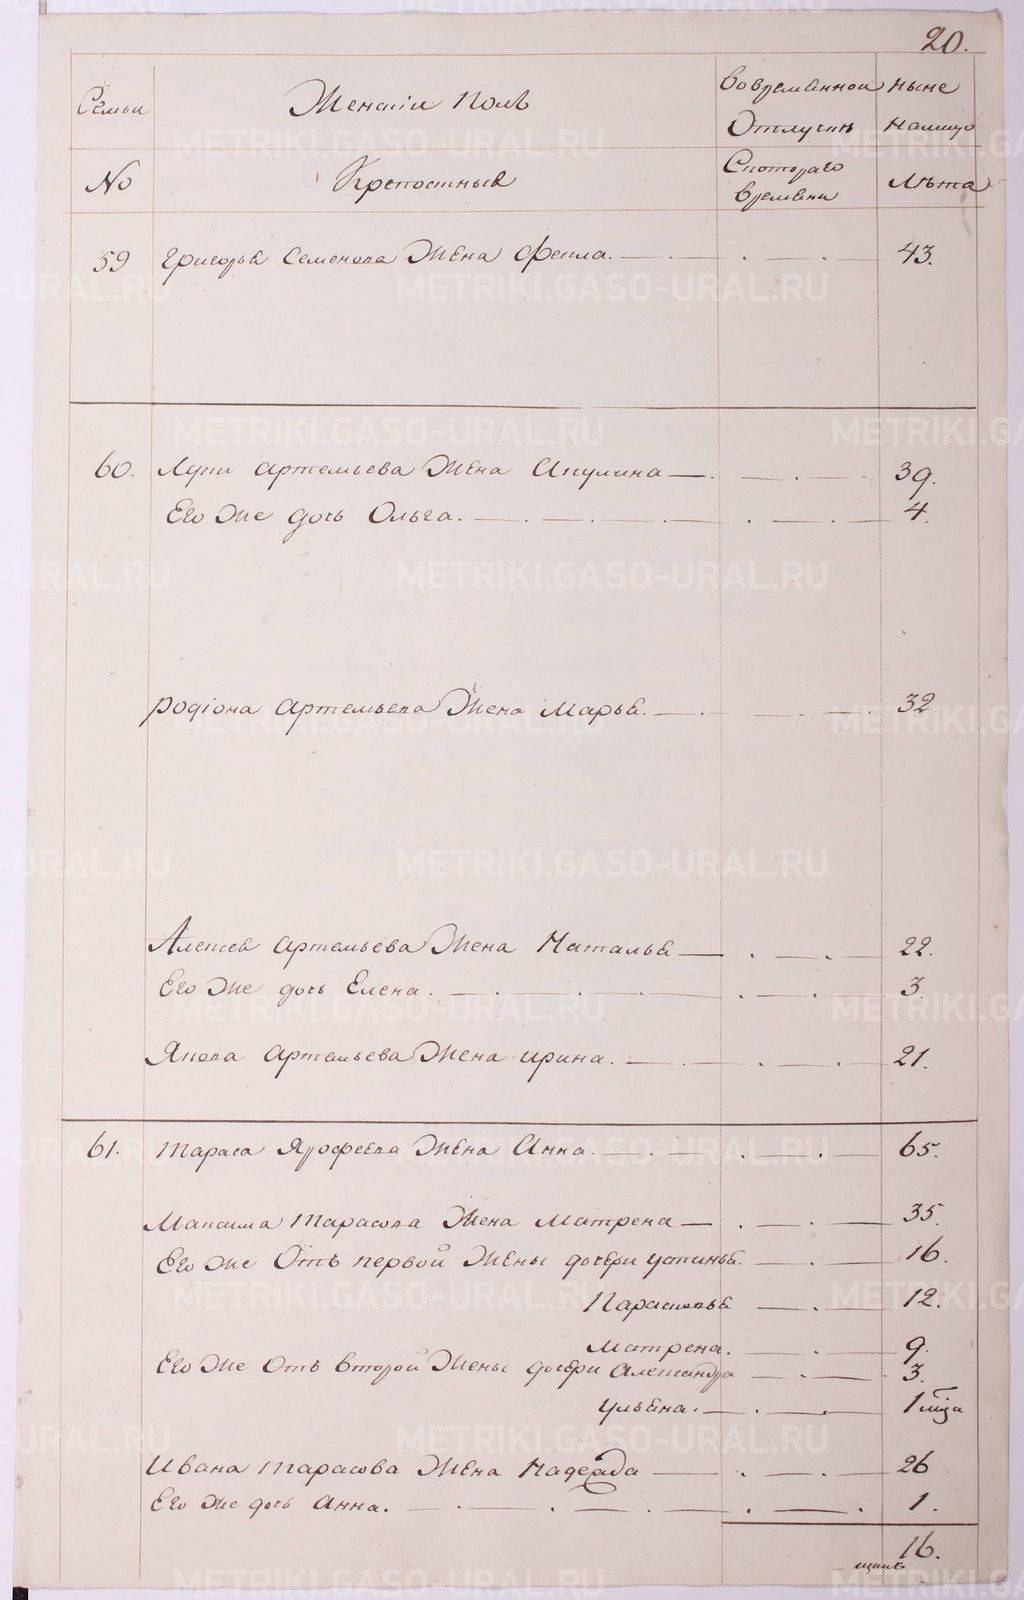 20.
Семьи Женскій Полъ Вовременной ныне
Отлучкѣ налицо
No Крепостныѣ Скотораго Лѣта
времѣни
59 Григорьѣ Семенова Жѣна Фекла. 43.
60. Лупи Артемьева Жѣна Акулина 39.
Его же дочь Ольга. 4.
Родіона Артемьева Жена Марьѣ. 32.
Алексѣя Артемьева Жена Наталья 22.
Его Же дочь Елена. 3.
Якова Артемьева Жена Ирина. 21.
61. Тараса Ярофеева Жѣна Анна. 65.
Максима Тарасова Жена Матрена 35.
Его же Отъ первой Жены дочери Устинья. 16.
Парасковья 12.
Матрена. 9.
Его же Отъ второй Жены дочери Александра 3.
Ульѣна. 1 мцы
Ивана Тарасова Жѣна Надежда 26
Его же дочь Анна. 1.
16.
METRIKI.GASO-URAL.RU